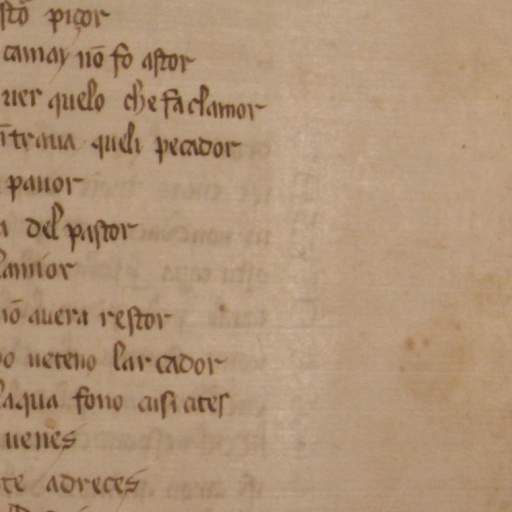 sto piçor
camay nō fo astor
uer quelo che fa clamor
ītraua queli pecador
pauor
del pastor
lamor
nō auera restor
ueteno larcador
laqua fono cusi ates
uenes
te adreces